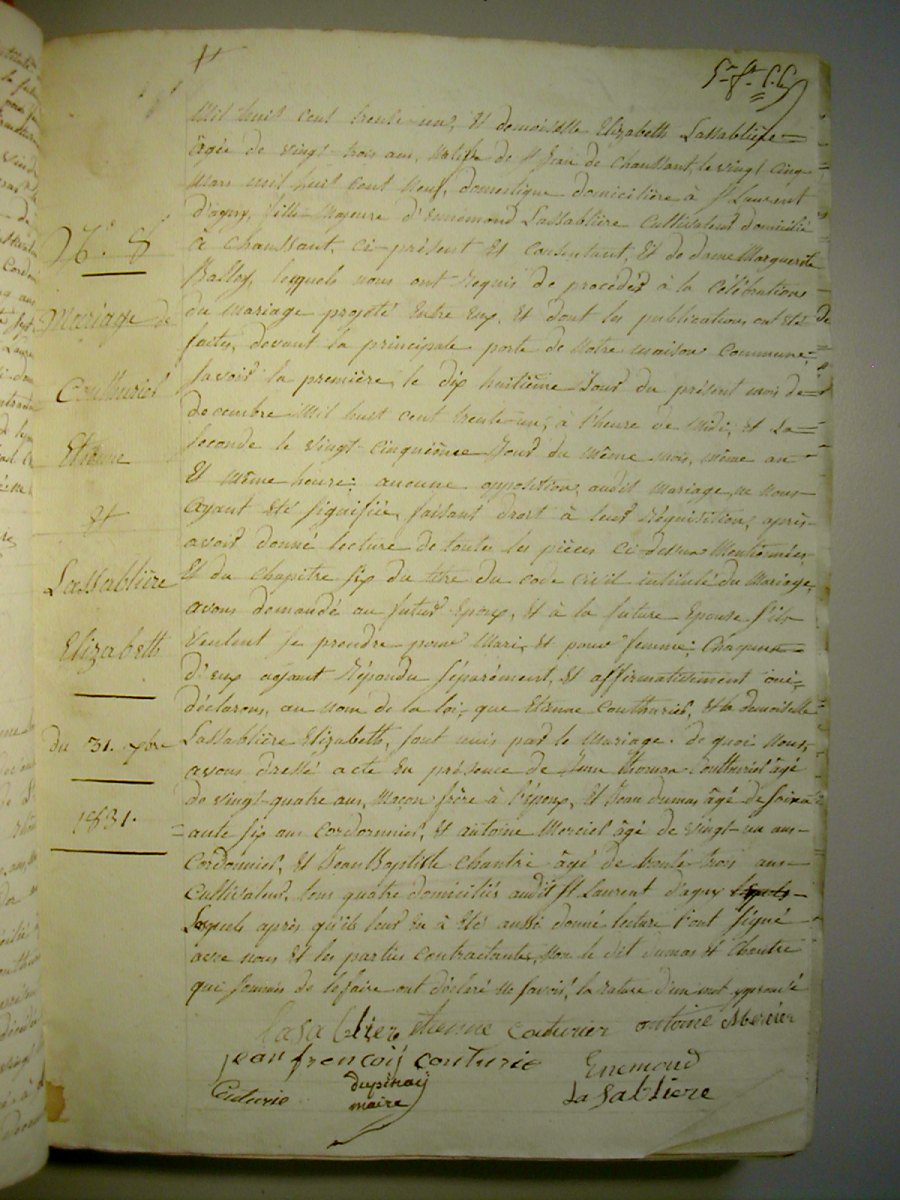 Mil huit cent trente-un, Et demoiselle Elizabeth Lassablière
âgée de vingt-trois ans, Native de St Jean de Chaussant, le vingt cinq
Mars mil huit cent neuf, domestique domiciliére à St Laurent
d'agny, fille Majeure d'Ennemond Lassablière Cultivateur domicilié
N°. 8
à Chaussant, ci-présent Et Consentant, Et de dame Marguerite
lesquels nous ont Requis de procéder à la Célébration
Mariage de
du Mariage projeté Entre Eux, Et dont les publications ont été
faites, devant la principale porte de Notre maison Commune,
Savoir la première, le dix huitième Jour du présent mois de
Couthurier
decembre Mil huit cent trente-un, à l'heure de Midi, et La
Etienne
Seconde le vingt-cinquième Jour du même mois, même an
Et même heure; aucune opposition, audit Mariage, ne Nous
&
ayant été Signifiée, faisant droit à leur Réquisition, après
avoir donné lecture de toutes les pièces ci-dessus Mentionnées
Lassablière
Et du chapitre six du titre du code civil intitulé du Mariage,
avons demandé au futur Epoux, Et à la future Epouse S'ils
Elizabeth
veulent se prendre pour Mari, Et pour femme; Chaqu'un
d'eux ayant Répondu Séparément, Et affirmativement oui;
déclarons, au nom de la loi, que Etienne Couthurier, Et la demoiselle
du 31. xbre
Lassablière Elizabeth, sont unis par le Mariage. de quoi Nous
avons dressé acte En présence de Jean Thomas Couthurier âgé
1831.
de vingt-quatre ans, Maçon frère à l'époux, Et Jean dumas âgé de soixa
ante six ans Cordonnier, Et antoine Mercier âgé de vingt-un ans
Cordonnier, Et Jean Baptiste Chantre âgé de trente trois ans
Cultivateur, tous quatre domiciliés audit St Laurent d'agny
Lesquels après qu'ils leur En à Eté aussi donné lecture l'ont Signé
avec nous Et les parties Contractantes, Non le dit dumas Et Chantre
qui Sommés de le faire ont déclaré ne Savoir, la rature d'un mot approuvé
lasablier etienne couturier antoine Mercier
jean françois couturie
Enemond
Cuturie
dupinay
maire
La Sabliere